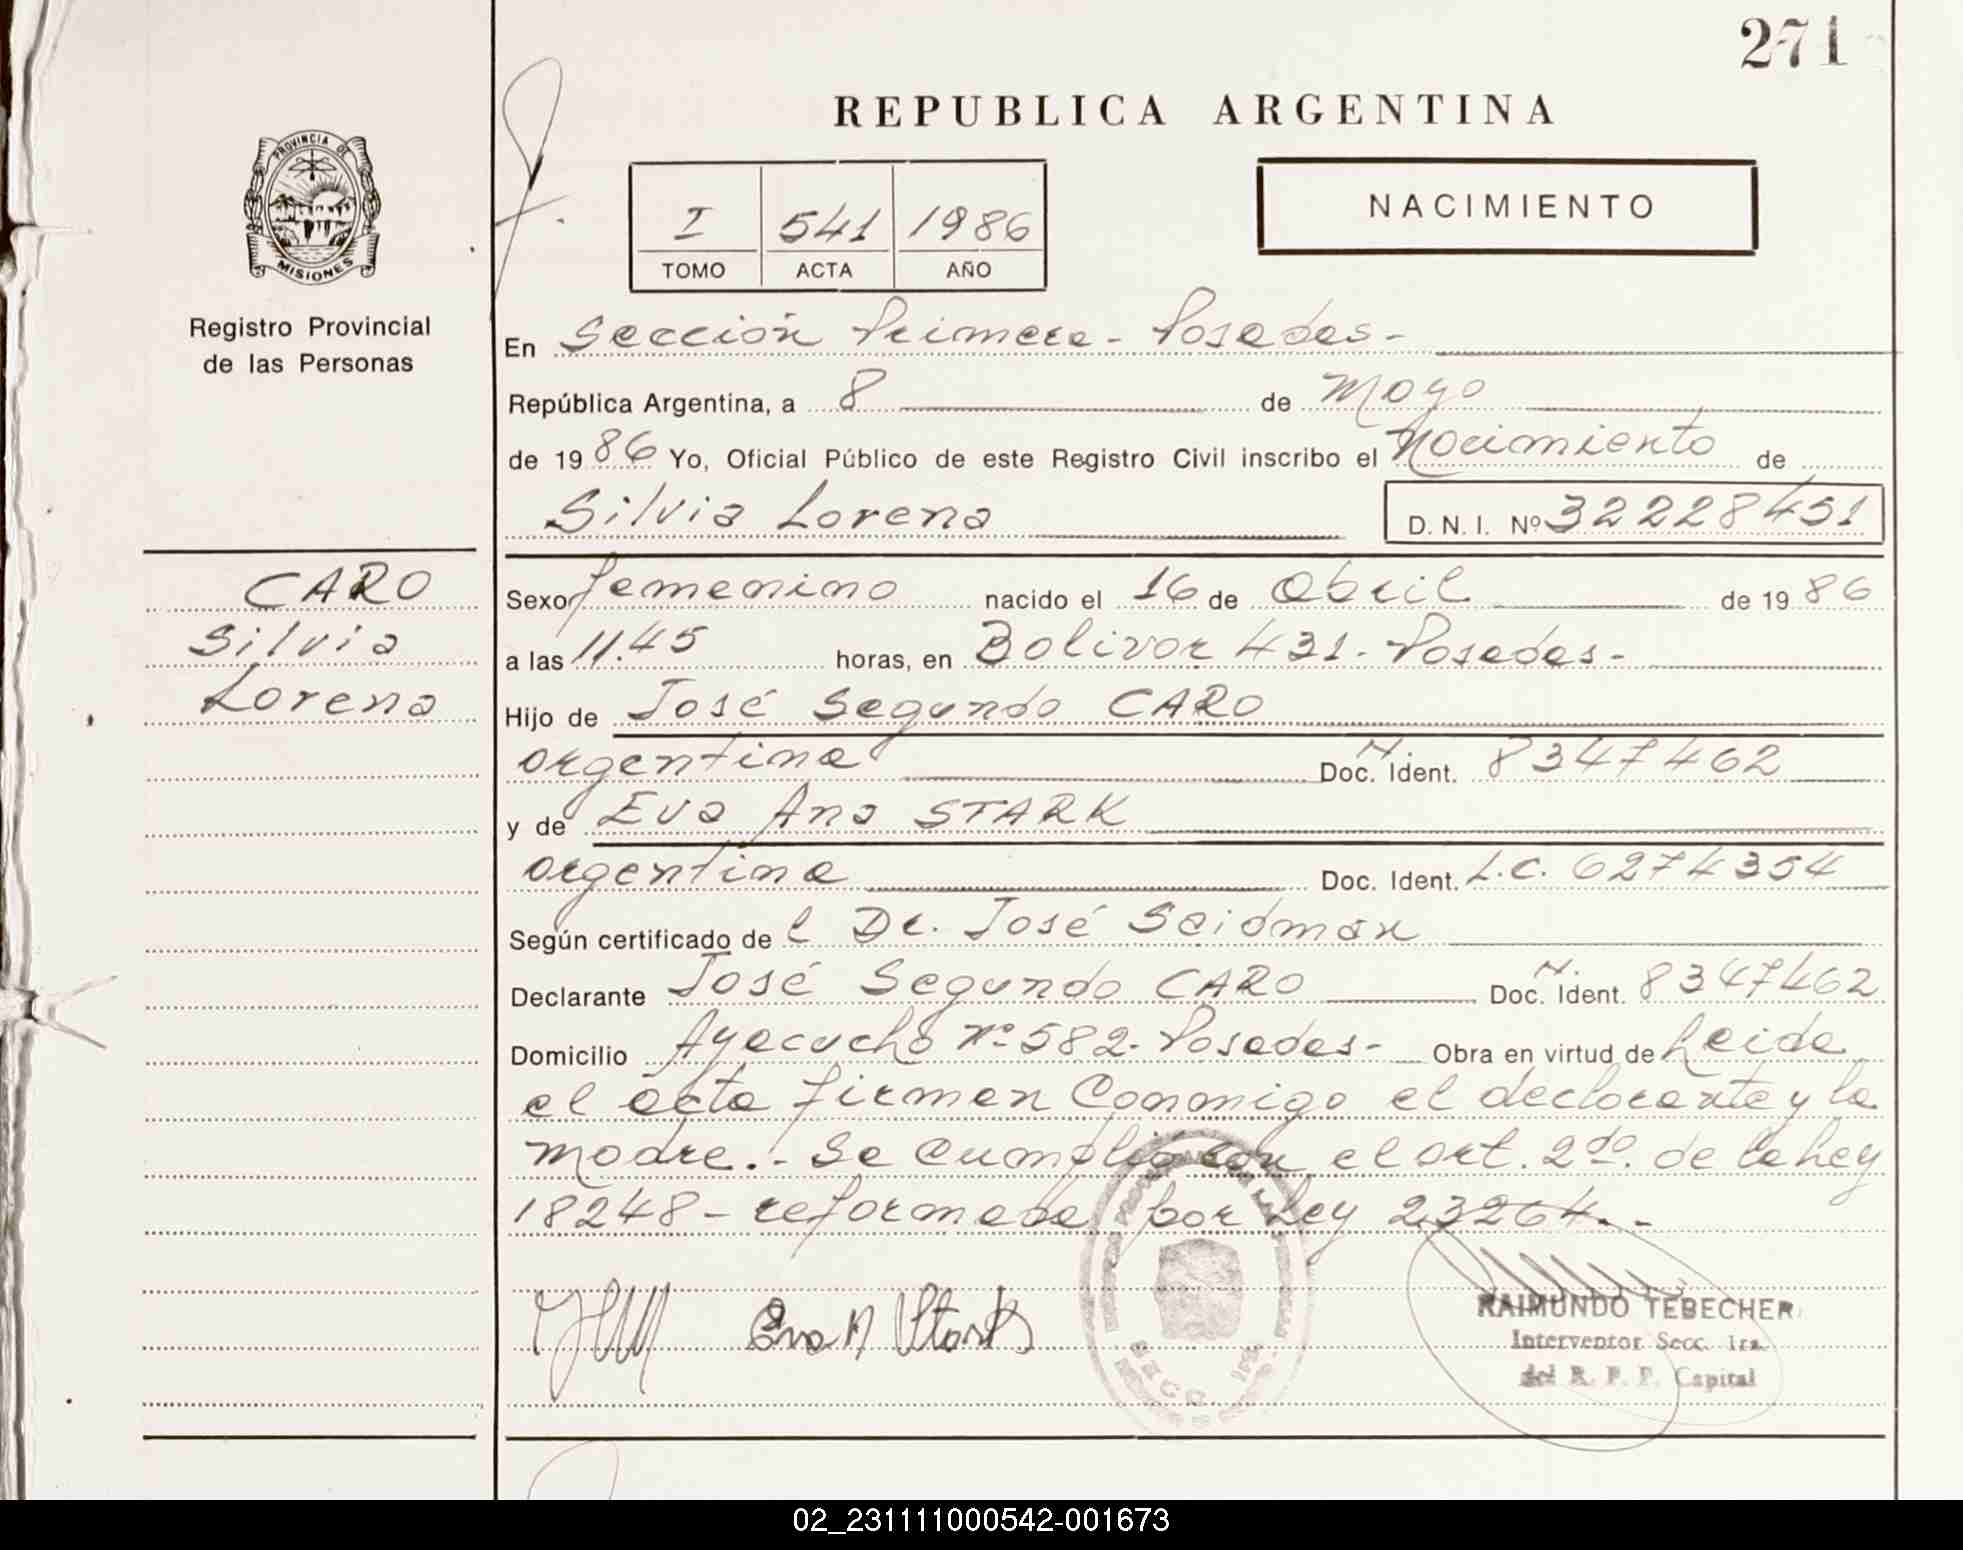 271
REPUBLICA ARGENTINA
PROVINCIA DE
MISIONES
Registro Provincial
de las Personas
I 541 1986
TOMO ACTA AÑO
NACIMIENTO
En Sección Primera - Posadas -
República Argentina, a 8 de Mayo
de 1986 Yo, Oficial Público de este Registro Civil inscribo el Nacimiento de
Silvia Lorena D. N. I. Nº 32228451
CARO
Silvia
Lorena
Sexo femenino nacido el 16 de Abril de 1986
a las 11.45 horas, en Bolivar 431 - Posadas -
Hijo de José Segundo CARO
argentina Doc. Ident. 8347462
y de Eva Ana STARK
argentina Doc. Ident. L.C. 6274354
Según certificado de l Dr. José Seidman
Declarante José Segundo CARO Doc. Ident. 8347462
Domicilio Ayacucho Nº 582 - Posadas - Obra en virtud de Leida
el acta firman conmigo el declarante y la
madre. - Se cumplió con el art. 2do. de la Ley
18248 - reformada por Ley 23264. -
Eva A Stark
SECC. 1ra
RAIMUNDO TEBECHER
Interventor Secc. 1ra.
del R. P. P. Capital
02_231111000542-001673